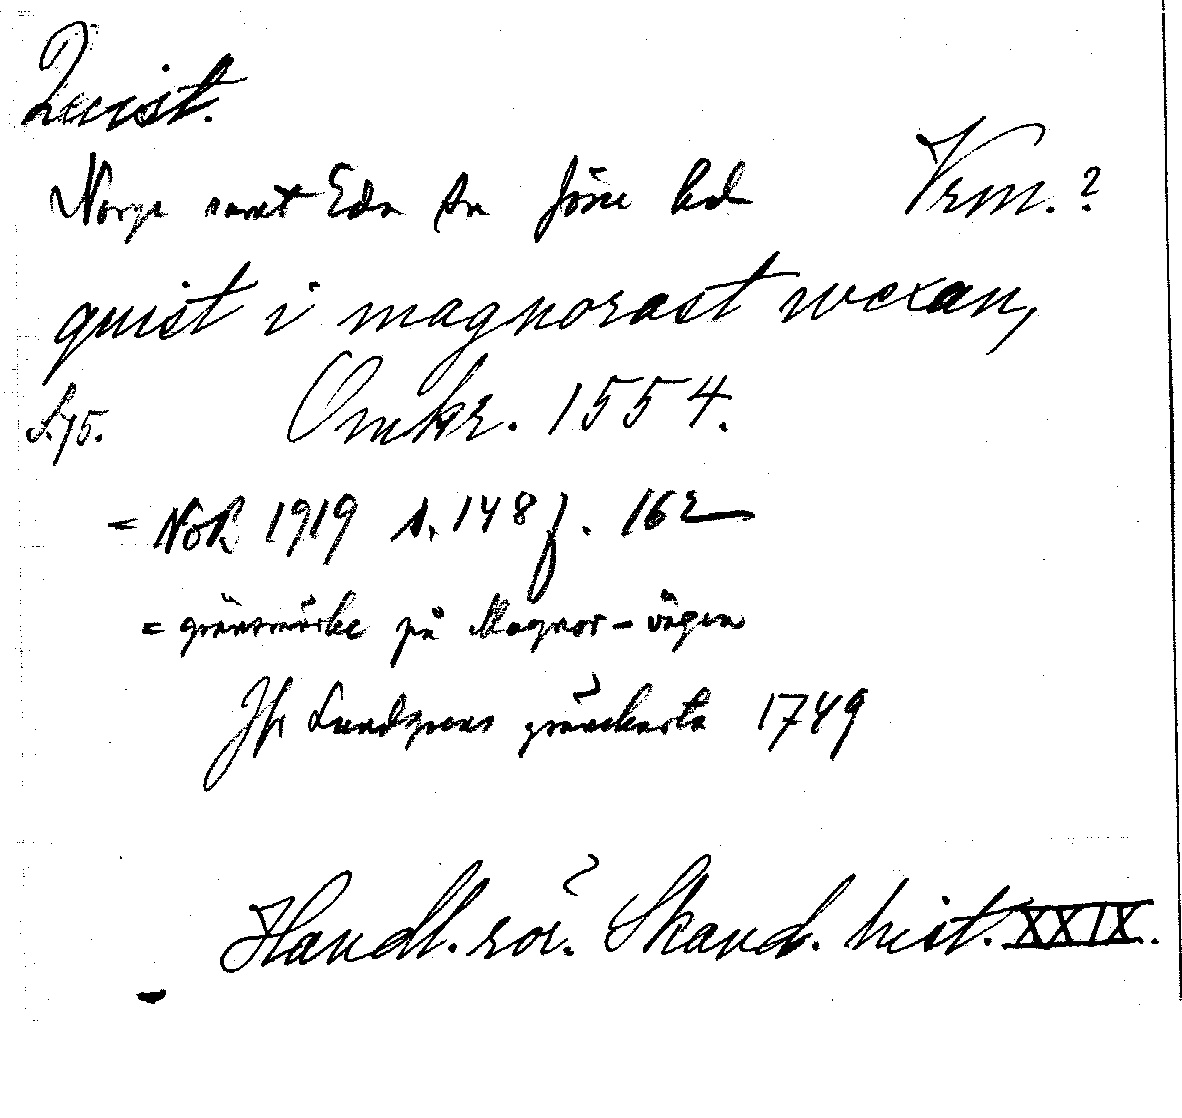 Quist.
Norge samt Eda sn Jösse hd Vrm.?
quist i magnorast wexan,
S. 75. Omkr. 1554.
= NoB 1919 s. 148 f. 162
= gränsmärke på Magnor-vägen
Jfr Lundgrens gränskarta 1749
Handl. rör. Skand. hist. XXIX.